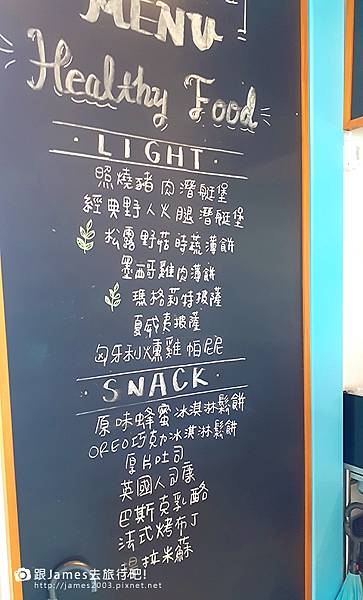 MENU
Healthy Food
· LIGHT ·
照燒豬肉潛艇堡
經典野人火腿潛艇堡
松露野菇時蔬薄餅
墨西哥雞肉薄餅
瑪格莉特披薩
夏威夷披薩
匈牙利燻雞帕尼尼
· SNACK ·
原味蜂蜜冰淇淋鬆餅
OREO巧克力冰淇淋鬆餅
厚片吐司
英國人司康
巴斯克乳酪
法式烤布丁
提拉米蘇
跟James去旅行吧!
http://james2003.pixnet.net